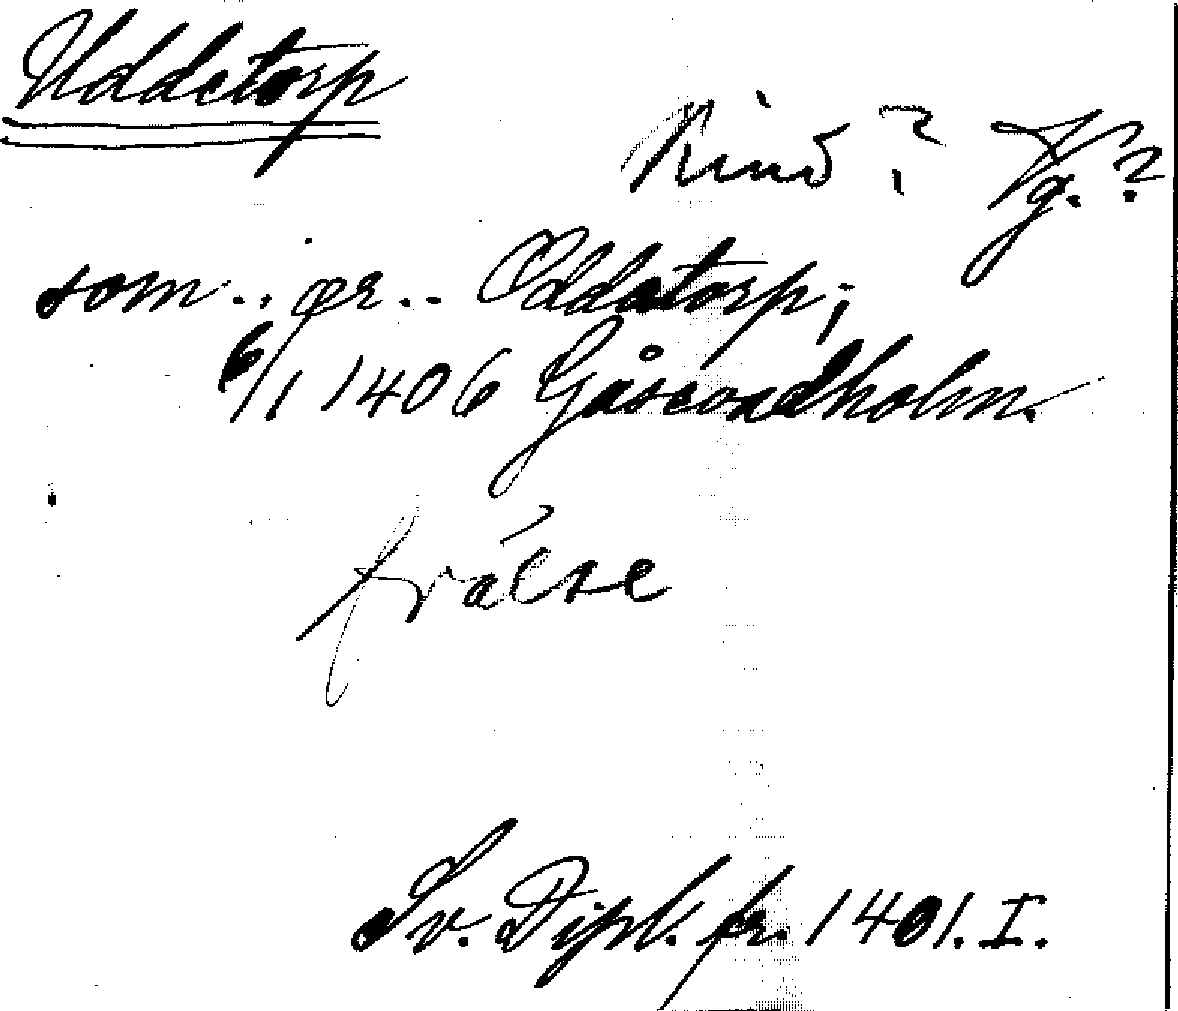 Uddetorp
Kind? Vg.?
som .. ær .. Oddatorp;
6/1 1406 Gåseondholm.
frälse
Sv. Dipl. fr. 1401. I.